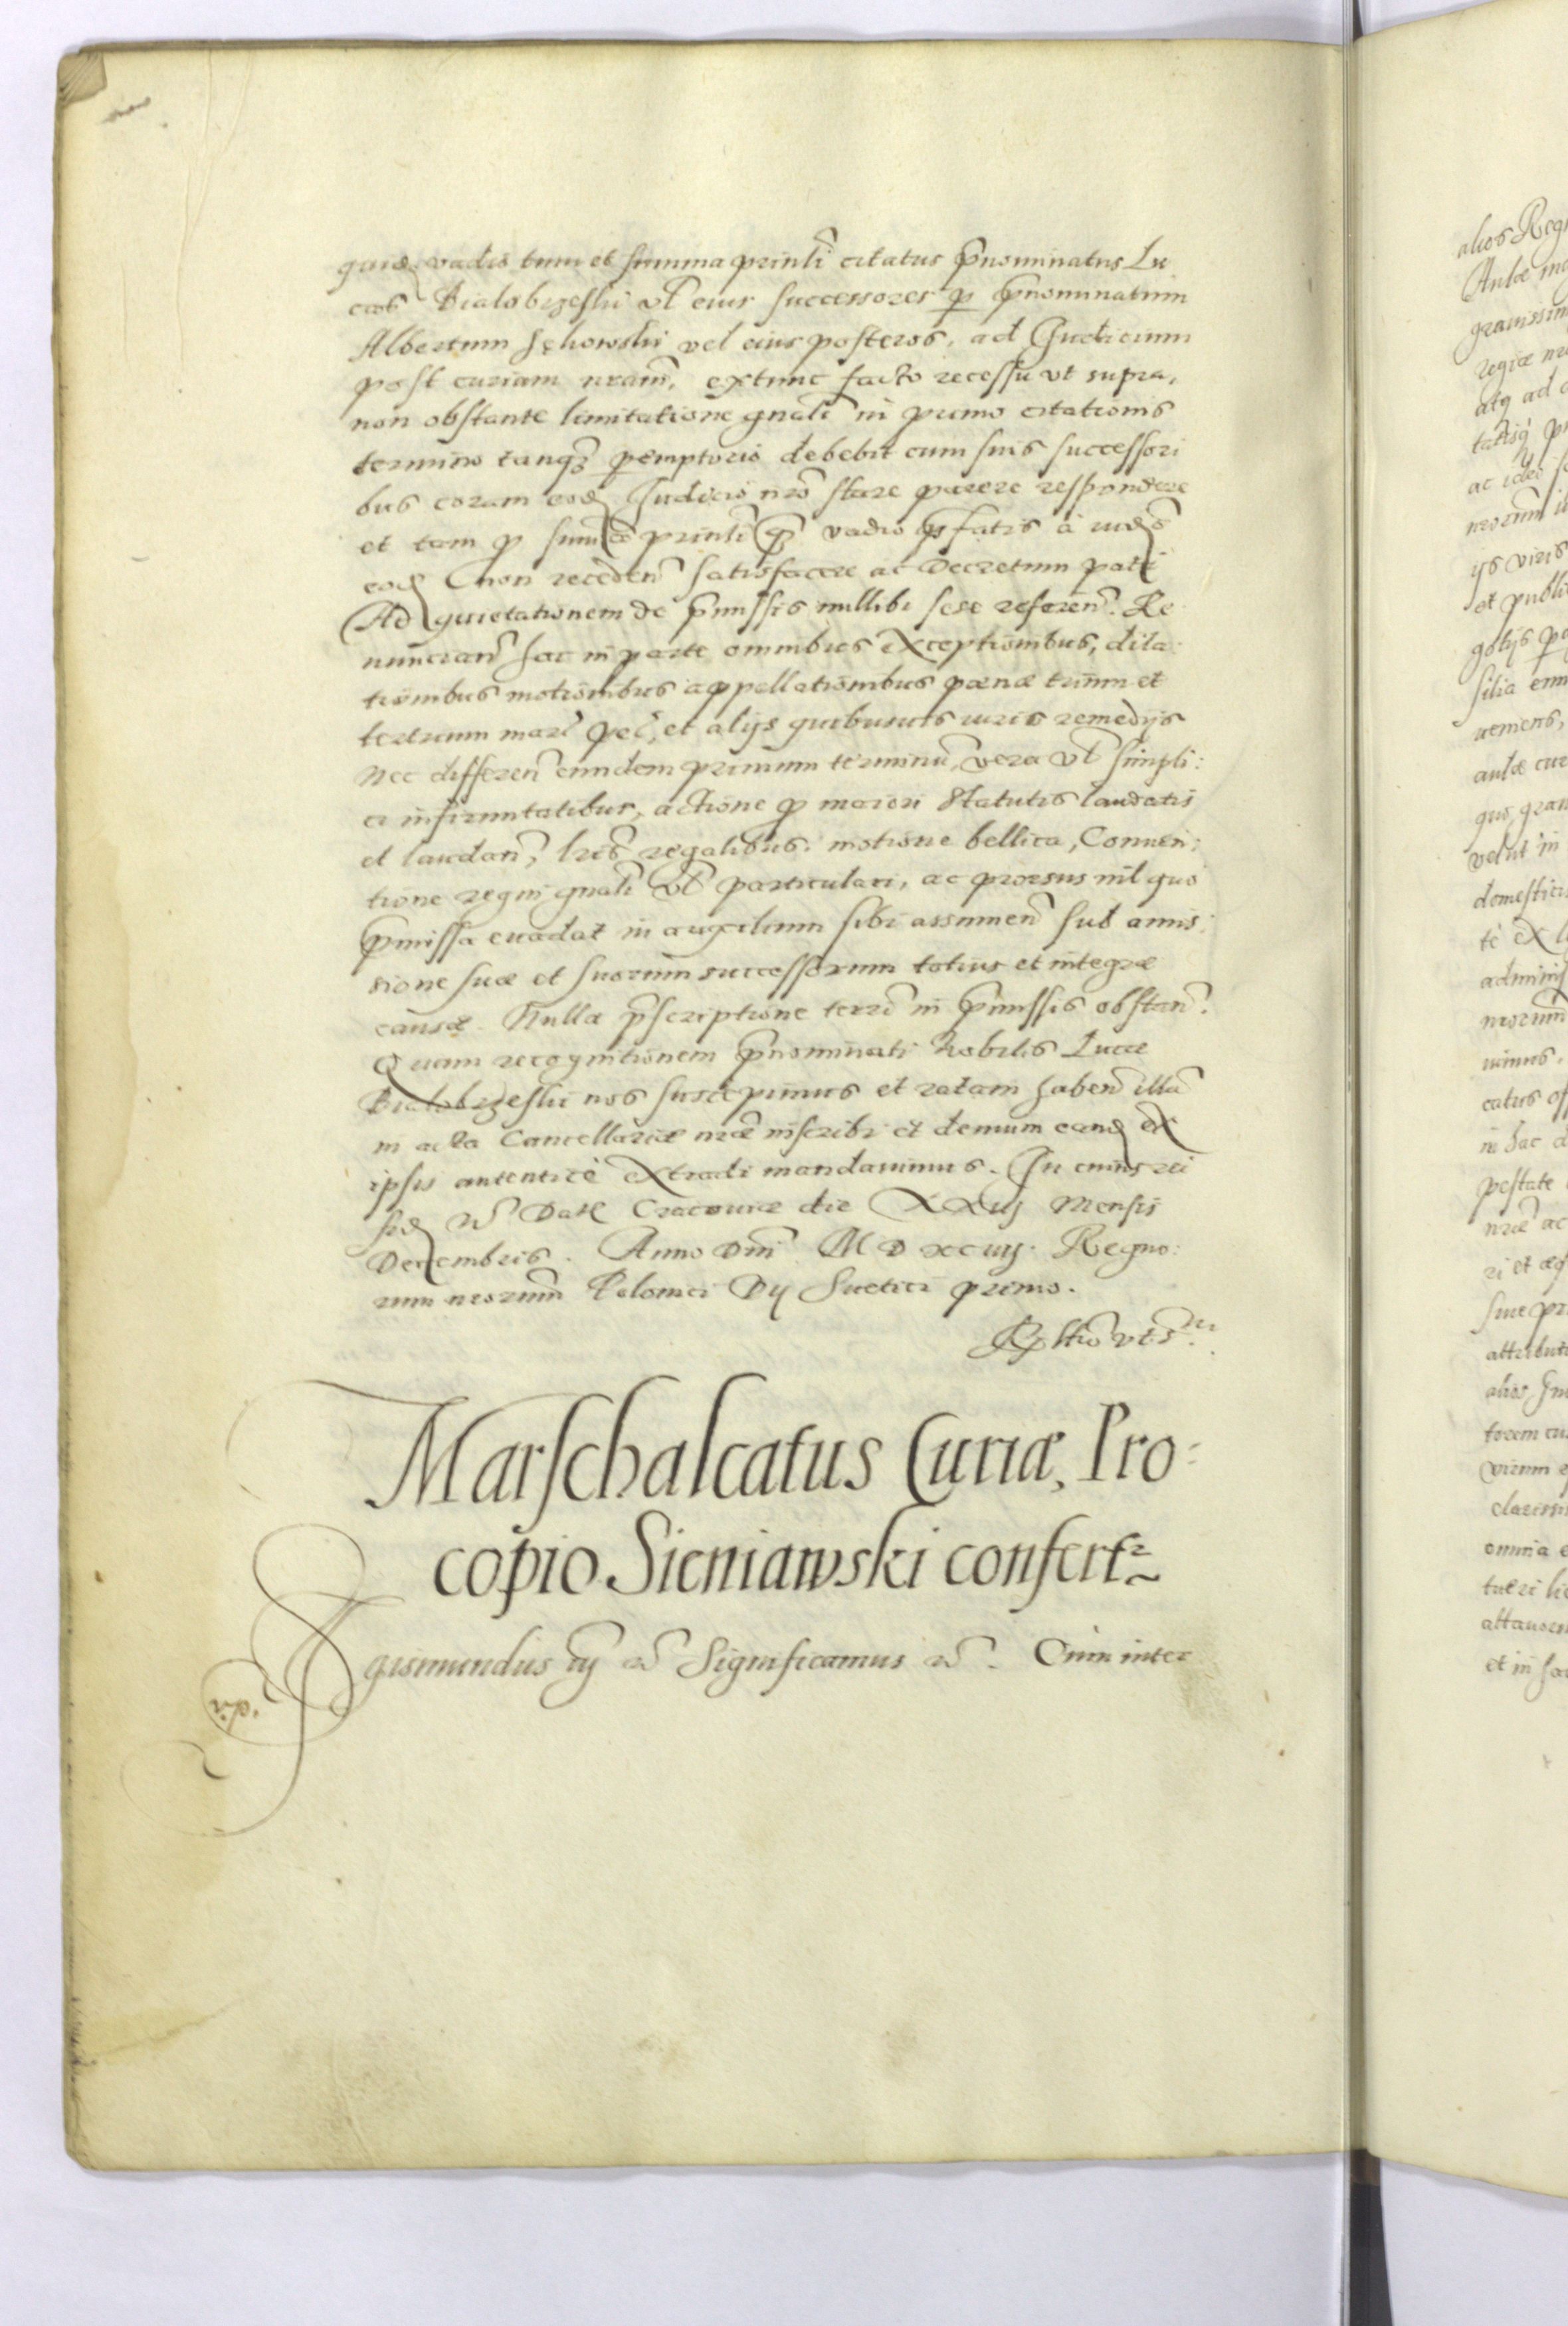 vadio tum et summa prinli citatus pnominatus Lu
cas Bialobrzeski vl eius successores p pnominatum
Albertum Sękowski vel eius posteros, ad Judicium
post curiam nram, extunc facto recessu vt supra,
non obstante limitatione gnali in primo citationis
termino tanq pemptorio debebit cum suis successori
bus coram eod Judicio nro stare parere respondere
et tam p summa prinli q vadio pfatis à iud
eod non receden satisfacere ac Decretum pati
Ad quietationem de pmissis nullibi sese referen. Re
nuncian hac in parte omnibus exceptionibus, dila
tionibus motionibus appellationibus pœnæ trium et
et alijs quibusuis iuris remedijs
Nec differen eundem primum terminū, vera vl simpli:
ci infirmitatibus, actione p maiori statutis laudatis
et laudan, lris regalibus: motione bellica, Conuen:
tione regni gnali vl particulari, ac prorsus nil quo
pmissa euadat in auxilium sibi assumen sub amis:
sione suæ et suorum successorum totius et integræ
causæ. Nulla pscriptione terri in pmissis obstan.
Quam recognitionem pnominati Nobilis Lucæ
Bialobrzeski nos suscepimus et ratam haben illā
in acta Cancellariæ nræ inscribi et demum eand ex
ipsis autenticè extradi mandauimus. In cuius rei
fid Dat Cracouiæ die XXiij Mensis
Decembris. Anno Dni M D xciiij. Regno:
rum nrorum Polonici Vij Suetici primo.
Marschalcatus Curiæ, Pro:
copio Sieniawski confert
Sigismundus iij Significamus Cum inter